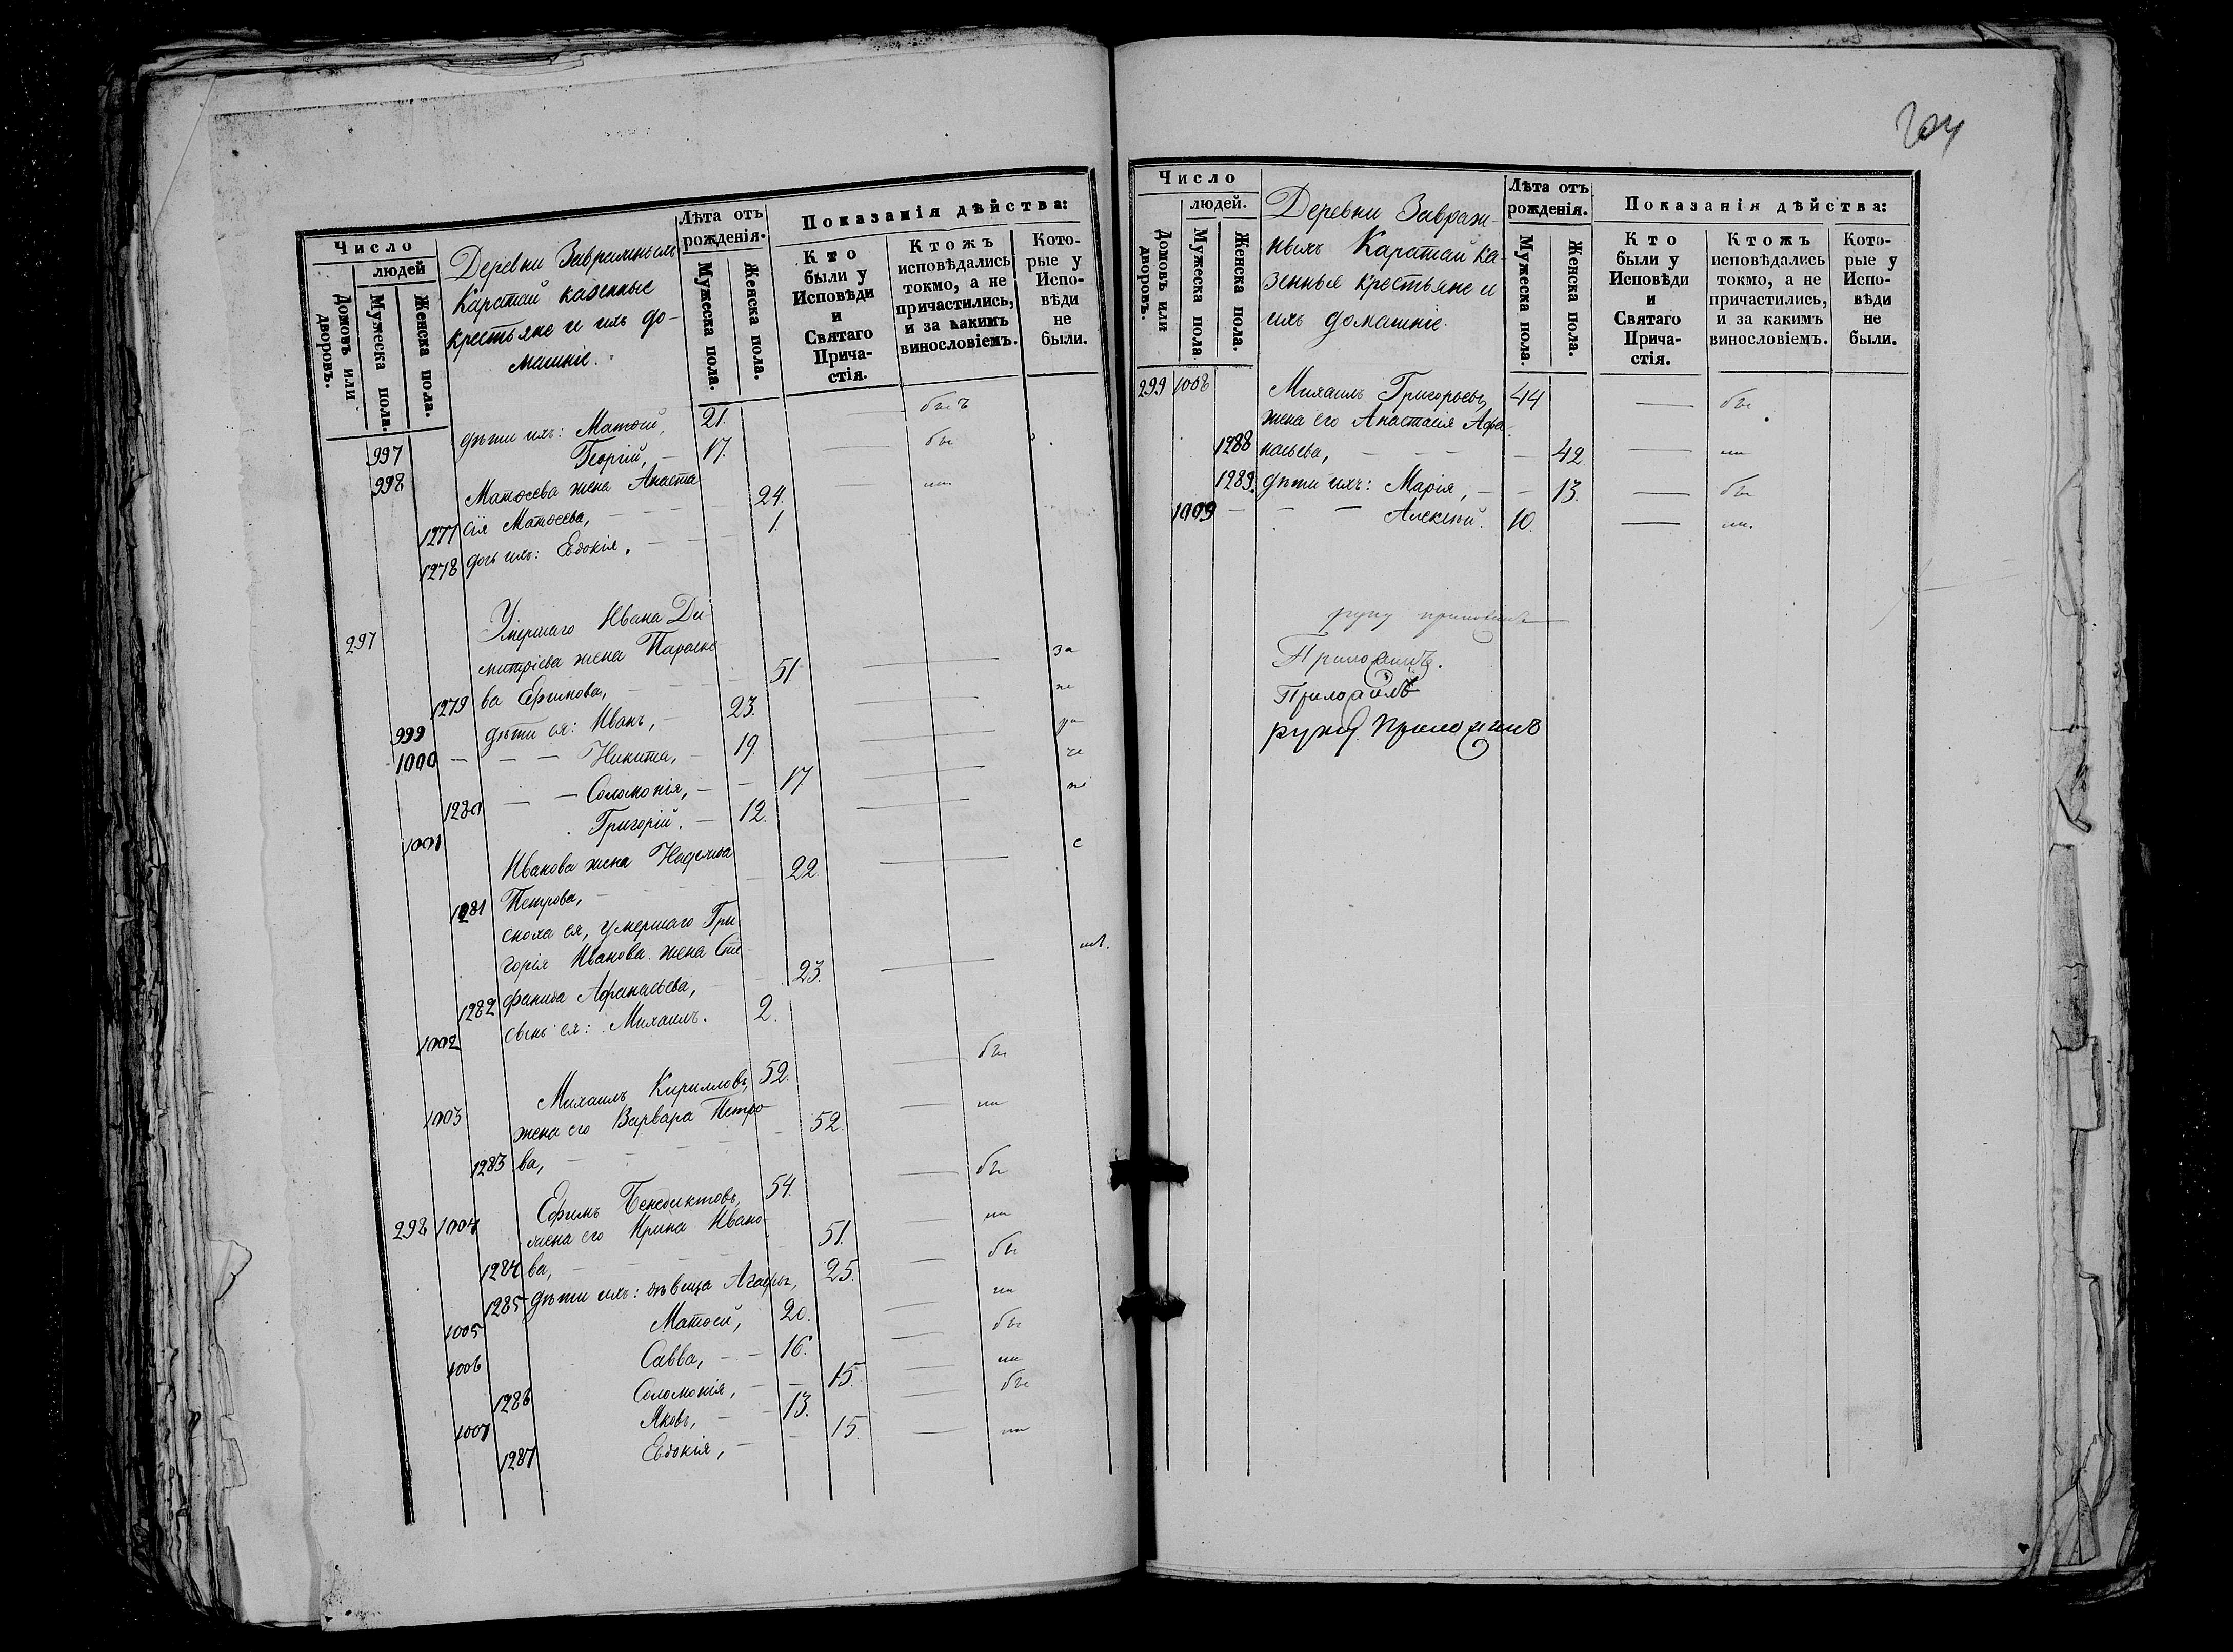 Число
людей
Домовъ или дворовъ.
Мужеска пола.
Женска пола.
Деревни Завражныхъ
Каратай казенные
крестьяне и ихъ до-
машніе.
Лѣта отъ
рожденія.
Мужеска пола.
Женска пола.
Показанія дѣйства:
Кто
были у
Исповѣди
и
Святаго
Прича-
стія.
Ктожъ
исповѣдались
токмо, а не
причастились,
и за какимъ
винословіемъ.
Кото-
рые у
Испо-
вѣди
не
были.
997 дѣти ихъ: Матѳей, 21. — бы
998 Георгій, — 17. — бы
Матѳеева жена Анаста-
1277 сія Матѳеева, — 24. —
1278 дочь ихъ: Евдокія. — 1.
297 Умершаго Ивана Ди-
митріева жена Параске-
1279 ва Ефимова, — 51 — за
999 дѣти ея: Иванъ, — 23. — не
1000 — Никита, — 19.
1280 — Соломонія, — 17
1001 Григорій. — 12.
Иванова жена Надежда
1281 Петрова, — 22.
сноха ея, умершаго Гри-
горія Иванова жена Сте-
1282 фанида Афанасьева, — 23.
1002 сынъ ея: Михаилъ. 2.
1003 Михаилъ Кирилловъ, 52. — бы
жена его Варвара Петро-
1283 ва, — 52. — ли
298 1004 Ефимъ Венедиктовъ, 54. — бы
жена его Ирина Ивано-
1284 ва, — 51. — ли
1285 дѣти ихъ: дѣвица Агафья, 25. — бы
1005 Матѳей, 20. — ли
1006 Савва, — 16. — бы
1286 Соломонія, — 15. — ли
1007 Яковъ, — 13. — бы
1287 Евдокія, — 15. — ли
Число
людей.
Домовъ или дворовъ.
Мужеска пола.
Женска пола.
Деревни Завраж-
ныхъ Каратай ка-
зенные крестьяне и
ихъ домашніе.
Лѣта отъ
рожденія.
Мужеска пола.
Женска пола.
Показанія дѣйства:
Кто
были у
Исповѣди
и
Святаго
Прича-
стія.
Ктожъ
исповѣдались
токмо, а не
причастились,
и за какимъ
винословіемъ.
Кото-
рые у
Испо-
вѣди
не
были.
299 1008 Михаилъ Григорьевъ, 44 — бы
жена его Анастасія Афа-
1288 насьева, — 42. — ли
1289. дѣти ихъ: Марія, — 13. — бы
1009 — Алексѣй. 10. — ли.
руку приложилъ
Приложилъ.
руку приложилъ